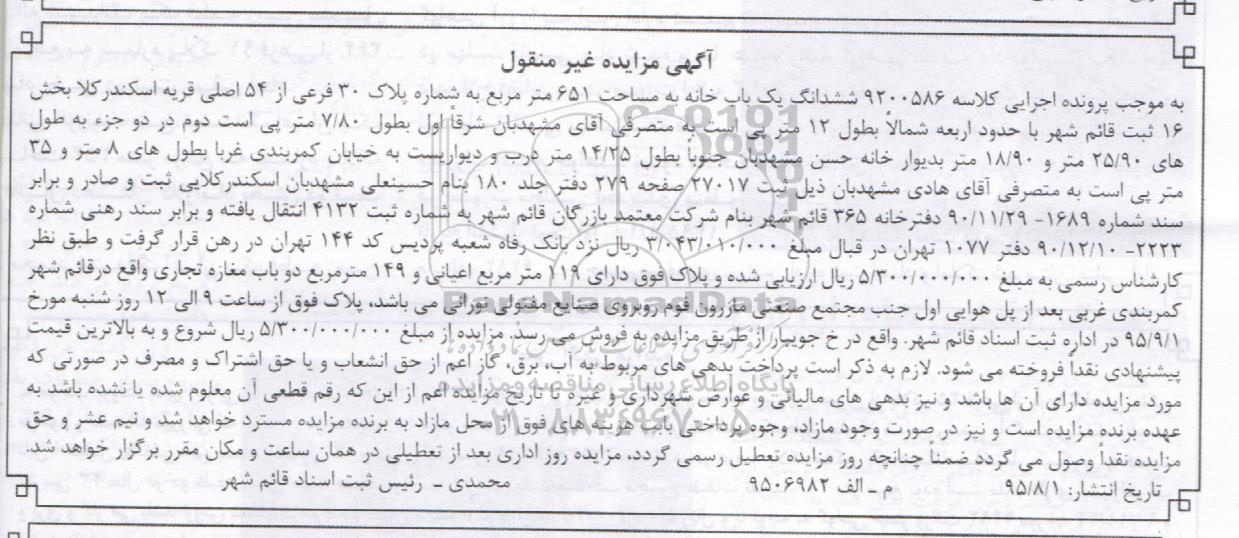 آگهی مزایده غیر منقول
به موجب پرونده اجرایی کلاسه ۹۲۰۰۵۸۶ ششدانگ یک باب خانه به مساحت ۶۵۱ متر مربع به شماره پلاک ۳۰ فرعی از ۵۴ اصلی قریه اسکندرکلا بخش
۱۶ ثبت قائم شهر با حدود اربعه شمالاً بطول ۱۲ متر پی است به متصرفی آقای مشهدبان شرقاً اول بطول ۷/۸۰ متر پی است دوم در دو جزء به طول
های ۲۵/۹۰ متر و ۱۸/۹۰ متر بدیوار خانه حسن مشهدبان جنوباً بطول ۱۴/۲۵ متر درب و دیواریست به خیابان کمربندی غربا بطول های ۸ متر و ۳۵
متر پی است به متصرفی آقای هادی مشهدبان ذیل ثبت ۲۷۰۱۷ صفحه ۲۷۹ دفتر جلد ۱۸۰ بنام حسینعلی مشهدبان اسکندرکلایی ثبت و صادر و برابر
سند شماره ۱۶۸۹- ۹۰/۱۱/۲۹ دفترخانه ۳۶۵ قائم شهر بنام شرکت معتمد بازرگان قائم شهر به شماره ثبت ۴۱۳۲ انتقال یافته و برابر سند رهنی شماره
۲۲۲۳- ۹۰/۱۲/۱۰ دفتر ۱۰۷۷ تهران در قبال مبلغ ۳/۰۴۳/۰۱۰/۰۰۰ ریال نزد بانک رفاه شعبه پردیس کد ۱۴۴ تهران در رهن قرار گرفت و طبق نظر
کارشناس رسمی به مبلغ ۵/۳۰۰/۰۰۰/۰۰۰ ریال ارزیابی شده و پلاک فوق دارای ۱۱۹ متر مربع اعیانی و ۱۴۹ مترمربع دو باب مغازه تجاری واقع درقائم شهر
کمربندی غربی بعد از پل هوایی اول جنب مجتمع صنعتی مازرون فوم روبروی صنایع مفتولی نورانی می باشد، پلاک فوق از ساعت ۹ الی ۱۲ روز شنبه مورخ
۹۵/۹/۱ در اداره ثبت اسناد قائم شهر. واقع در خ جویبار از طریق مزایده به فروش می رسد. مزایده از مبلغ ۵/۳۰۰/۰۰۰/۰۰۰ ریال شروع و به بالاترین قیمت
پیشنهادی نقداً فروخته می شود. لازم به ذکر است پرداخت بدهی های مربوط به آب، برق، گاز اعم از حق انشعاب و یا حق اشتراک و مصرف در صورتی که
مورد مزایده دارای آن ها باشد و نیز بدهی های مالیاتی و عوارض شهرداری و غیره تا تاریخ مزایده اعم از این که رقم قطعی آن معلوم شده یا نشده باشد به
عهده برنده مزایده است و نیز در صورت وجود مازاد، وجوه پرداختی بابت هزینه های فوق از محل مازاد به برنده مزایده مسترد خواهد شد و نیم عشر و حق
مزایده نقداً وصول می گردد ضمنا چنانچه روز مزایده تعطیل رسمی گردد، مزایده روز اداری بعد از تعطیلی در همان ساعت و مکان مقرر برگزار خواهد شد.
تاریخ انتشار: ۹۵/۸/۱ م - الف ۹۵۰۶۹۸۲ محمدی - رئیس ثبت اسناد قائم شهر
ParsNamadData
پایگاه اطلاع رسانی مناقصه و مزایده
۰۲۱-۸۸۳۴۹۶۷۰-۵